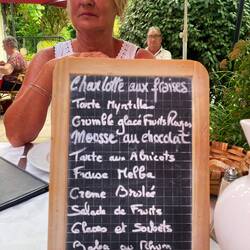 Charlotte aux fraises
Tarte Myrtilles
Crumble glacé Fruits Rouges
Mousse au chocolat
Tarte aux Abricots
Fraise Melba
Creme Brulée
Salade de Fruits
Glaces et Sorbets
Baba au Rhum